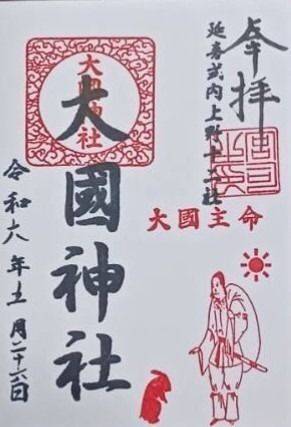 奉拝
延喜式内上野十二社
大國主命
大國神社
令和六年十一月二十六日